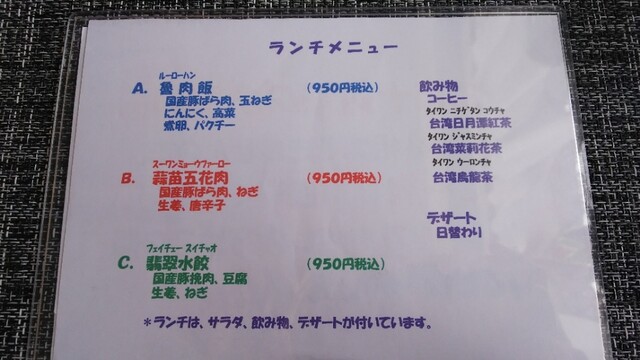 ランチメニュー
ルーローハン
A. 魯肉飯 (950円税込)
国産豚ばら肉、玉ねぎ
にんにく、高菜
煮卵、パクチー
スーワンミョーウファーロー
B. 蒜苗五花肉 (950円税込)
国産豚ばら肉、ねぎ
生姜、唐辛子
フェイチュー スイチャオ
C. 翡翠水餃 (950円税込)
国産豚挽肉、豆腐
生姜、ねぎ
飲み物
コーヒー
タイワン ニチゲタン コウチャ
台湾日月潭紅茶
タイワン ジャスミンチャ
台湾茉莉花茶
タイワン ウーロンチャ
台湾烏龍茶
デザート
日替わり
*ランチは、サラダ、飲み物、デザートが付いています。